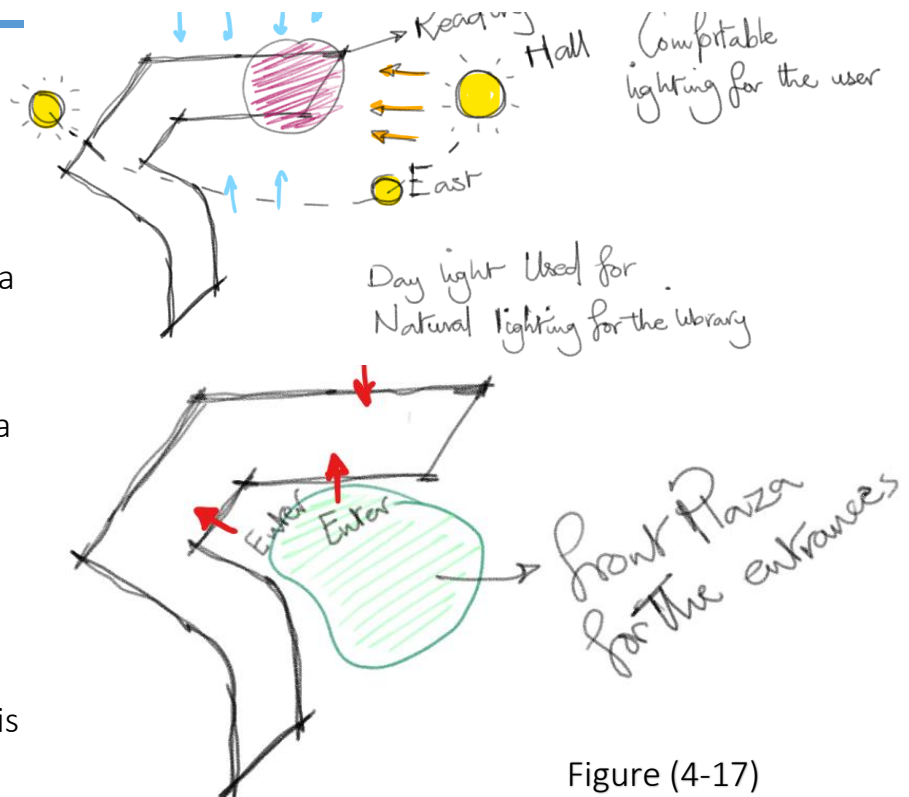 Reading
Hall
Comfortable
lighting for the user
East
a
Day light Used for
Natural lighting for the library
a
Enter
Enter
front Plaza
for The entrances
is
Figure (4-17)